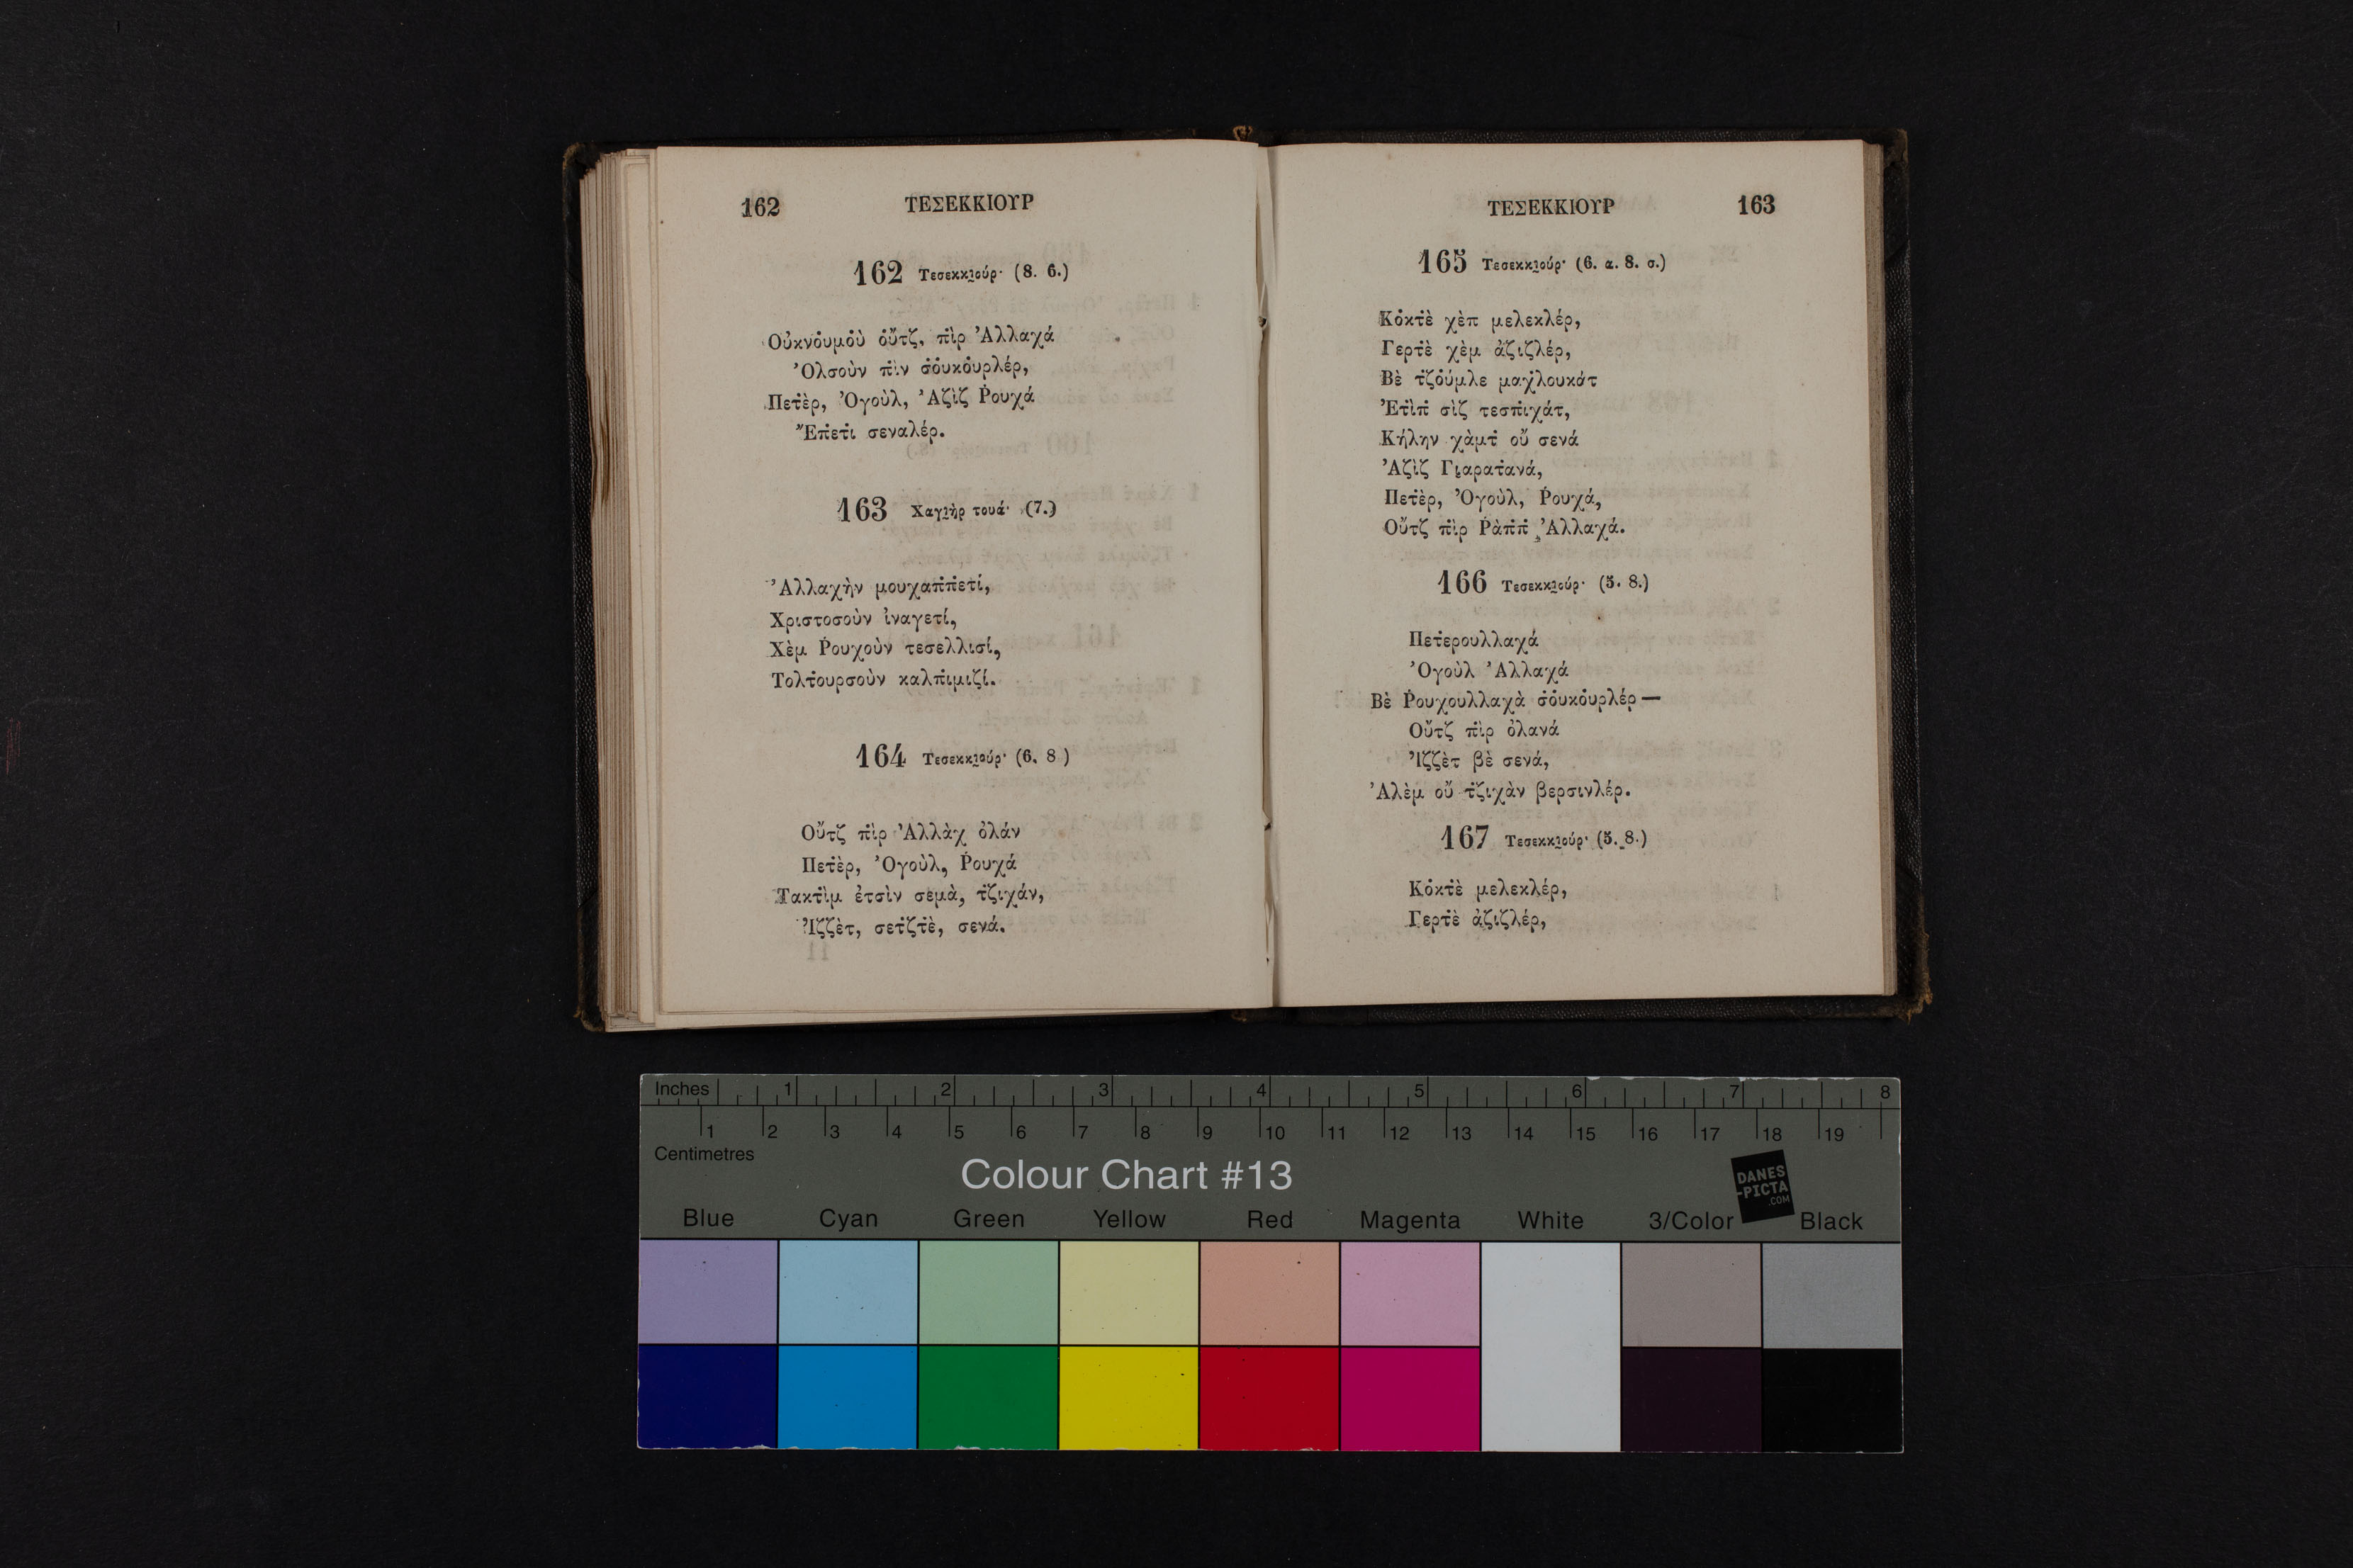 162 ΤΕΣΕΚΚΙΟΥΡ
162 Τεσεκκι̲ούρ· (8. 6.)
Οὐκνο̇υμο̇ὺ ο̇ὔτζ, π̇ὶρ Ἀλλαχά
Ὀλσοὺν π̇ὶν σ̇ο̇υκο̇υρλέρ,
Πετ̇ὲρ, Ὀγοὺλ, Ἀζὶζ Ῥουχά
Ἔπ̇ετ̇ι σεναλέρ.
163 Χαγι̲ὴρ τουά· (7.)
Ἀλλαχὴν μουχαπ̇π̇ετί,
Χριστοσοὺν ἰναγετί,
Χὲμ Ῥουχοὺν τεσελλισί,
Τολτ̇ουρσοὺν καλπ̇ιμιζί.
164 Τεσεκκι̲ούρ· (6. 8)
Οὔτζ π̇ὶρ Ἀλλὰχ ὀλάν
Πετ̇ὲρ, Ὀγοὺλ, Ῥουχά
Τακτ̇ὶμ ἐτσὶν σεμὰ, τ̇ζιχάν,
Ἰζζὲτ, σετ̇ζτ̇ὲ, σενά.
ΤΕΣΕΚΚΙΟΥΡ 163
165 Τεσεκκι̲ούρ· (6. α. 8. σ.)
Κο̇κτ̇ὲ χὲπ μελεκλέρ,
Γερτ̇ὲ χὲμ ἀζιζλέρ,
Βὲ τ̇ζο̇ύμλε μαχλουκάτ
Ἐτ̇ὶπ̇ σὶζ τεσπ̇ιχάτ,
Κήλην χὰμτ̇ οὔ σενά
Ἀζὶζ Γι̲αρατ̇ανά,
Πετ̇ὲρ, Ὀγοὺλ, Ῥουχά,
Οὔτζ π̇ὶρ Ῥὰπ̇π̇ Ἀλλαχά.
166 Τεσεκκι̲ούρ· (5. 8.)
Πετ̇ερουλλαχά
Ὀγοὺλ Ἀλλαχά
Βὲ Ῥουχουλλαχὰ σ̇ο̇υκο̇υρλέρ—
Οὔτζ π̇ὶρ ὀλανά
Ἰζζὲτ βὲ σενά,
Ἀλὲμ οὔ τ̇ζιχὰν βερσινλέρ.
167 Τεσεκκι̲ούρ· (5. 8.)
Κο̇κτ̇ὲ μελεκλέρ,
Γερτ̇ὲ ἀζιζλέρ,
Inches 1 2 3 4 5 6 7 8
1 2 3 4 5 6 7 8 9 10 11 12 13 14 15 16 17 18 19
Centimetres
Colour Chart #13
DANES
-PICTA
.COM
Blue Cyan Green Yellow Red Magenta White 3/Color Black